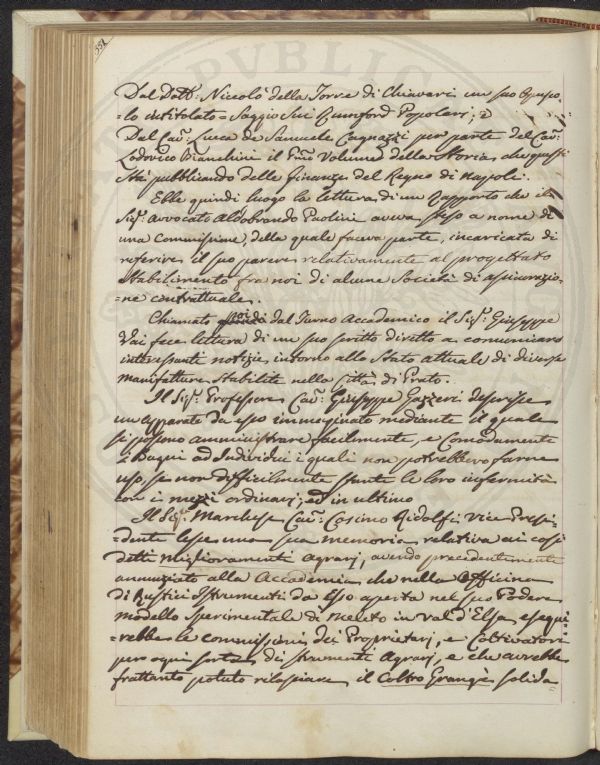 331
Dal Dott: Niccolò della Torre di Chiavari un suo Opusco-
=lo intitolato = Saggio Sui Rumford Popolari; e
Dal Cav: Luca de Samuele Cagnazzi per parte del Cav:
Lodovico Bianchini il Pmo Volume della Storia che questi
Stà pubblicando delle finanze del Regno di Napoli.
Ebbe quindi luogo la lettura di un Rapporto che il
Sigr. Avvocato Aldobrando Paolini aveva steso a nome di
una Commissione, della quale faceva parte, incaricata di
referire il suo parere relativamente al progettato
Stabilimento fra noi di alcune Società di assicurazio-
=ne contrattuale.
Chiamato poi dal Turno Accademico il Sigr. Giuseppe
Vai fece lettura di un suo scritto diretto a comunicare
interessanti notizie intorno allo Stato attuale di diverse
manifatture Stabilite nella Città di Prato.
Il Sigr. Professore Cav: Giuseppe Gazzeri descrisse
un'apparato da esso immaginato mediante il quale
si possono amministrare facilmente, e Comodamente
i Bagni ad Individui i quali non potrebbero farne
uso se non difficilmente stante le loro infermità
con i mezzi ordinarj; ed in ultimo
Il Sigr. Marchese Cav: Cosimo Ridolfi Vice Presi-
=dente lesse una sua memoria relativa ai così
detti miglioramenti Agrarj, avendo precedentemente
annunziato alla Accademia che nella Officina
di Rustici Istrumenti da Esso aperta nel suo Podere
Modello Sperimentale di Meleto in Val d'Elsa esegui-
=rebbe le commissioni dei Proprietarj, e Coltivatori
per ogni sorta di strumenti Agrarj, e che avrebbe
frattanto potuto rilasciare il Coltro Grangè solida=